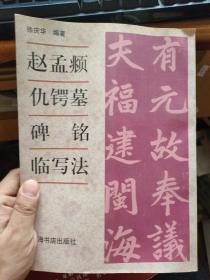 骆庆华 编著
赵孟頫
仇锷墓
碑铭
临写法
海书店出版社
有元故奉議
夫福建閩海